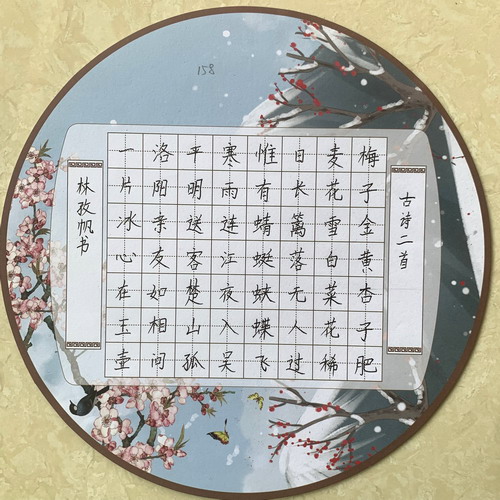 158
古诗二首
梅子金黄杏子肥
麦花雪白菜花稀
日长篱落无人过
惟有蜻蜓蛱蝶飞
寒雨连江夜入吴
平明送客楚山孤
洛阳亲友如相问
一片冰心在玉壶
林孜帆书